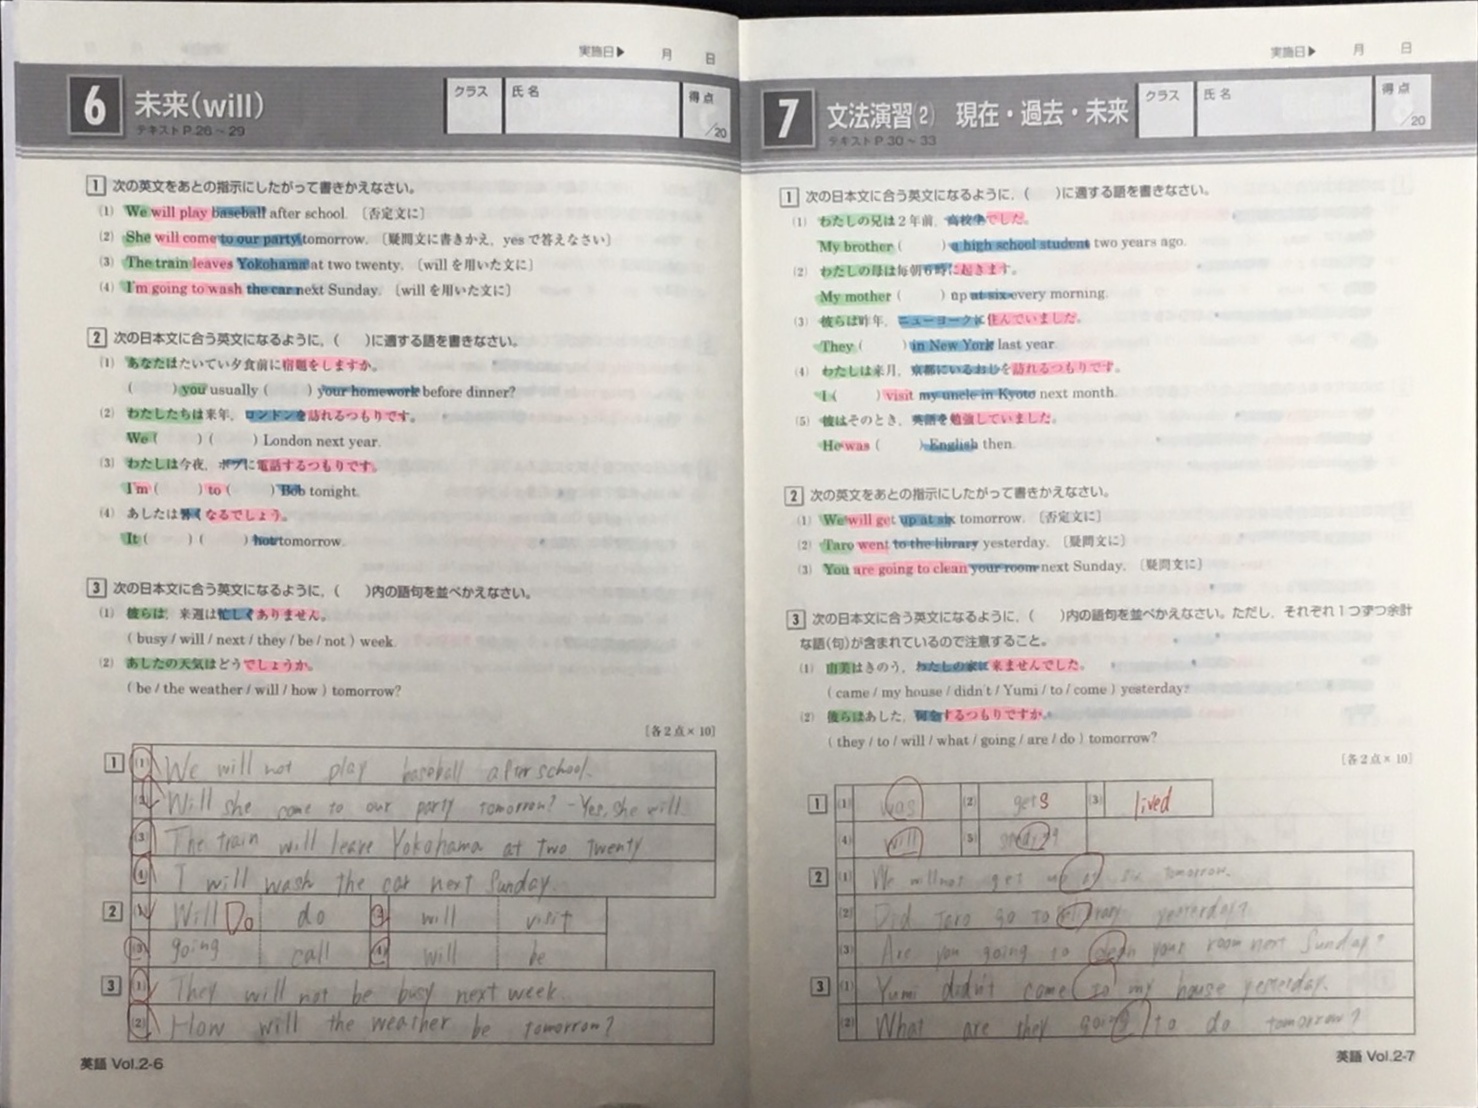 実施日▶ 月 日
6 未来(will)
テキストP.26～29
クラス 氏名 得点 /20
1 次の英文をあとの指示にしたがって書きかえなさい。
(1) We will play baseball after school. 〔否定文に〕
(2) She will come to our party tomorrow. 〔疑問文に書きかえ, yesで答えなさい〕
(3) The train leaves Yokohama at two twenty. 〔willを用いた文に〕
(4) I'm going to wash the car next Sunday. 〔willを用いた文に〕
2 次の日本文に合う英文になるように, ( )に適する語を書きなさい。
(1) あなたはたいてい夕食前に宿題をしますか。
( ) you usually ( ) your homework before dinner?
(2) わたしたちは来年, ロンドンを訪れるつもりです。
We ( ) ( ) London next year.
(3) わたしは今夜, ボブに電話するつもりです。
I'm ( ) to ( ) Bob tonight.
(4) あしたは暑くなるでしょう。
It ( ) ( ) hot tomorrow.
3 次の日本文に合う英文になるように, ( )内の語句を並べかえなさい。
(1) 彼らは, 来週は忙しくありません。
( busy / will / next / they / be / not ) week.
(2) あしたの天気はどうでしょうか。
( be / the weather / will / how ) tomorrow?
[各2点×10]
1 (1) We will not play baseball after school.
(2) Will she come to our party tomorrow? - Yes, she will
(3) The train will leave Yokohama at two twenty
(4) I will wash the car next Sunday.
2 (1) Will Do do (2) will visit
(3) going call (4) will be
3 (1) They will not be busy next week.
(2) How will the weather be tomorrow?
英語 Vol.2-6
実施日▶ 月 日
7 文法演習(2) 現在・過去・未来
テキストP.30～33
クラス 氏名 得点 /20
1 次の日本文に合う英文になるように, ( )に適する語を書きなさい。
(1) わたしの兄は2年前, 高校生でした。
My brother ( ) a high school student two years ago.
(2) わたしの母は毎朝6時に起きます。
My mother ( ) up at six every morning.
(3) 彼らは昨年, ニューヨークに住んでいました。
They ( ) in New York last year.
(4) わたしは来月, 京都にいるおじを訪れるつもりです。
I ( ) visit my uncle in Kyoto next month.
(5) 彼はそのとき, 英語を勉強していました。
He was ( ) English then.
2 次の英文をあとの指示にしたがって書きかえなさい。
(1) We will get up at six tomorrow. 〔否定文に〕
(2) Taro went to the library yesterday. 〔疑問文に〕
(3) You are going to clean your room next Sunday. 〔疑問文に〕
3 次の日本文に合う英文になるように, ( )内の語句を並べかえなさい。ただし, それぞれ1つずつ余計
な語(句)が含まれているので注意すること。
(1) 由美はきのう, わたしの家に来ませんでした。
( came / my house / didn't / Yumi / to / come ) yesterday.
(2) 彼らはあした, 何をするつもりですか。
( they / to / will / what / going / are / do ) tomorrow?
[各2点×10]
1 (1) was (2) gets (3) lived
(4) will (5)
2 (1) We will not get up at six tomorrow.
(2) Did Taro go to library yesterday?
(3) Are you going to clean your room next Sunday?
3 (1) Yumi didn't come to my house yesterday.
(2) What are they going to do tomorrow?
英語 Vol.2-7